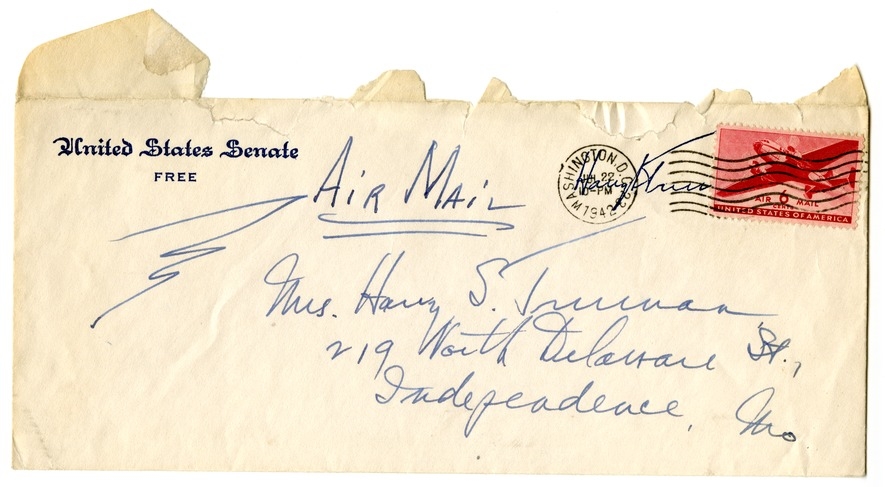 United States Senate
FREE
Air Mail
WASHINGTON, D.C.
22
10-PM
1942
Harry S Truman
AIR 6 MAIL
CENTS
UNITED STATES OF AMERICA
Mrs. Harry S. Truman
219 North Delaware St.,
Independence, Mo